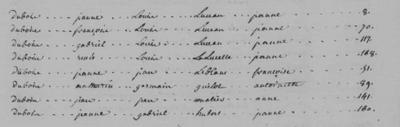 dubois ... jeanne ... Louis ... Luceau ... jeanne ... 8.
dubois ... françois ... Louis ... Luceau ... jeanne ... 70.
dubois ... gabriel ... Louis ... Luceau ... jeanne ... 117.
dubois ... rené ... Louis ... jeanne ... 168.
dubois ... jeanne ... jean ... Leblanc ... françoise ... 51.
dubois ... mathurin ... germain ... guélot ... antoinette ... 89.
dubois ... jean ... jean ... anne ... 141.
dubois ... jeanne ... gabriel ... hubert ... jeanne ... 160.